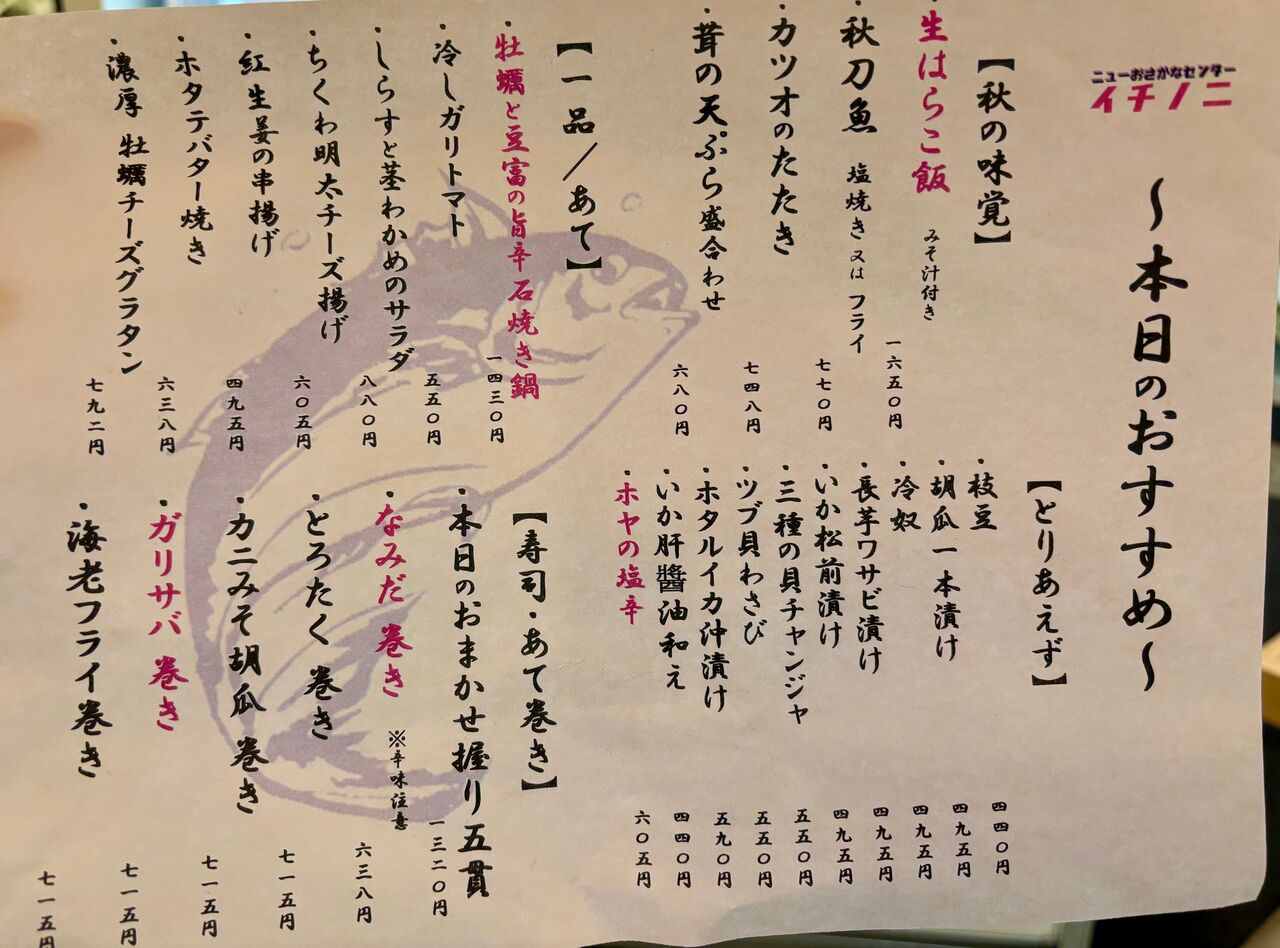 ニューおさかなセンター
イチノニ
～本日のおすすめ～
【秋の味覚】
・生はらこ飯 みそ汁付き 一六五〇円
・秋刀魚 塩焼き又はフライ 七七〇円
・カツオのたたき 七四八円
・茸の天ぷら盛合わせ 六八〇円
【とりあえず】
・枝豆 四四〇円
・胡瓜一本漬け 四九五円
・冷奴 四九五円
・長芋ワサビ漬け 四九五円
・いか松前漬け 四九五円
・三種の貝チャンジャ 五五〇円
・ツブ貝わさび 五五〇円
・ホタルイカ沖漬け 五九〇円
・いか肝醬油和え 四四〇円
・ホヤの塩辛 六〇五円
【一品／あて】
・牡蠣と豆富の旨辛石焼き鍋 一四三〇円
・冷しガリトマト 五五〇円
・しらすと茎わかめのサラダ 八八〇円
・ちくわ明太チーズ揚げ 六〇五円
・紅生姜の串揚げ 四九五円
・ホタテバター焼き 六三八円
・濃厚 牡蠣チーズグラタン 七九二円
【寿司・あて巻き】
・本日のおまかせ握り五貫 一三二〇円
・なみだ巻き ※辛味注意 六三八円
・とろたく巻き 七一五円
・カニみそ胡瓜巻き 七一五円
・ガリサバ巻き 七一五円
・海老フライ巻き 七一五円